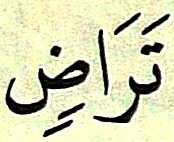 تَرَاضِ